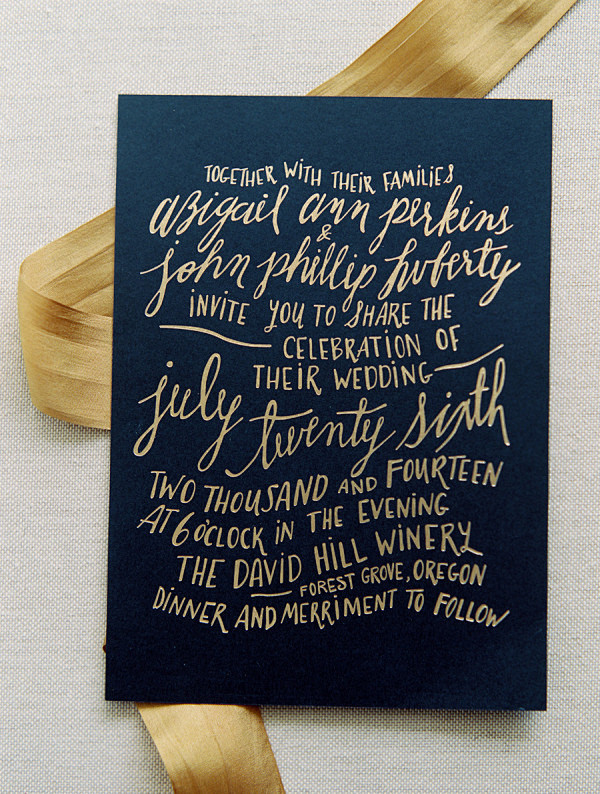 TOGETHER WITH THEIR FAMILIES
abigail ann perkins
&
john phillip huberty
INVITE YOU TO SHARE THE
CELEBRATION OF
THEIR WEDDING
july twenty sixth
TWO THOUSAND AND FOURTEEN
AT 6 O'CLOCK IN THE EVENING
THE DAVID HILL WINERY
FOREST GROVE, OREGON
DINNER AND MERRIMENT TO FOLLOW